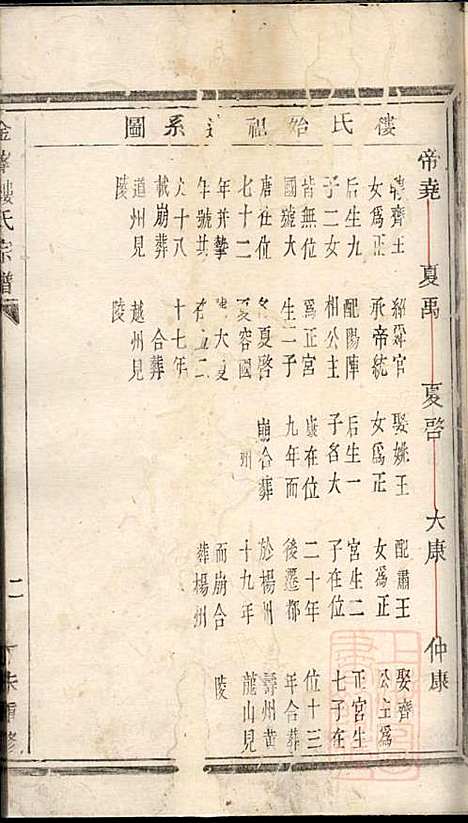 樓氏始祖迁系圖
帝堯
娉齊王
女爲正
后生九
子二女
皆無位
國號大
唐在位
七十二
年并摯
年號共
八十八
載崩葬
道州見
陵
夏禹
紹舜官
承帝統
配陽陣
相公主
爲正宮
生二子
名夏啓
夏容國
大夏
在位二
十七年
合葬
越州見
陵
夏啓
娶姚王
女爲正
后生一
子名大
康在位
九年而
崩合葬
州
大康
配肅王
女爲正
宮生二
子在位
二十年
後遷都
於楊州
十九年
而崩合
葬楊州
仲康
娶齊
公主爲
正宮生
七子在
位十三
年合葬
壽州黄
龍山見
陵
金華樓氏宗譜
二
丁未重修